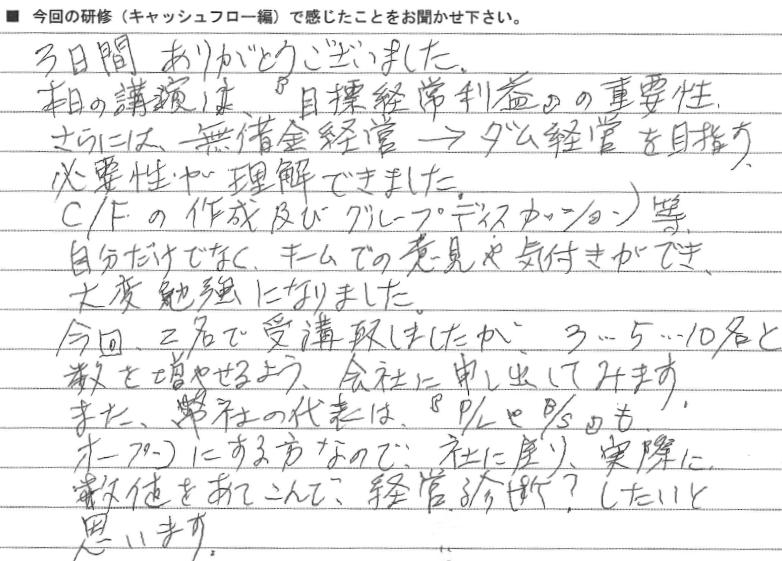 ■ 今回の研修（キャッシュフロー編）で感じたことをお聞かせ下さい。
3日間 ありがとうございました。
本日の講演は、『目標経常利益』の重要性、
さらには、無借金経営 → ダム経営を目指す
必要性が理解できました。
C/Fの作成及びグループディスカッション等、
自分だけでなく、チームでの意見や気付きができ、
大変勉強になりました。
今回、2名で受講致しましたが、3…5…10名と
数を増やせるよう、会社に申し出してみます。
また、弊社の代表は、『P/LやB/S』も、
オープンにする方なので、社に戻り、実際に
数値をあてこんで、経営診断？したいと
思います。